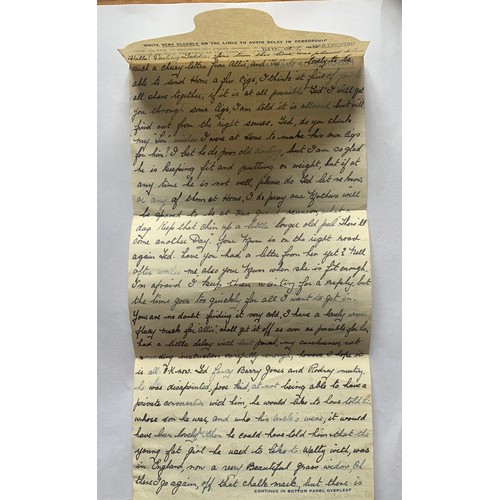 WRITE VERY CLEARLY ON THE LINES TO AVOID DELAY IN CENSORSHIP
Hello! Darling Ted.
such a cheery letter from Allis, and Ted lovely to be
able to send Home a few Cigs, I think it fine of you
all share together, if it is at all possible Ted I will get
you through some Cigs, I am told it is allowed but will
find out from the right source. Ted, do you think
my "Son" wishes I were at Home to make his own Cigs
for him? I bet he do poor old darling, but I am so glad
he is keeping fit and putting on weight, but if at
any time he is not well, please do Ted let me know
or any of them at Home, I do pray our Mothers will
be spared to be at our grand reunion, what a
day. Keep that chin up a little longer old pal "There'll
come another Day". Your Mum is on the right road
again Ted. have you had a letter from her yet? Nell
often writes me also your Mum when she is fit enough.
I'm afraid I keep them waiting for a reply, but
the time goes so quickly for all I want to get in.
You are no doubt finding it very cold, I have a lovely warm
for Allis, shall get it off as soon as possible for her,
had a little delay with last parcel, my carelessness, not
reading instruction carefully enough, however I hope it
is all O.K now. Ted fancy Barry Jones and Rodney meeting,
he was disappointed, poor kid, at not being able to have a
private conversation with him, he would like to have told him
whose son he was, and who his uncle's were, it would
have been lovely, then he could have told him that the
young fat girl he used to take to Watty with, was
in England, now a very Beautiful grass widow, Oh
there I go again, off that chalk mark, but there is
CONTINUE IN BOTTOM PANEL OVERLEAF